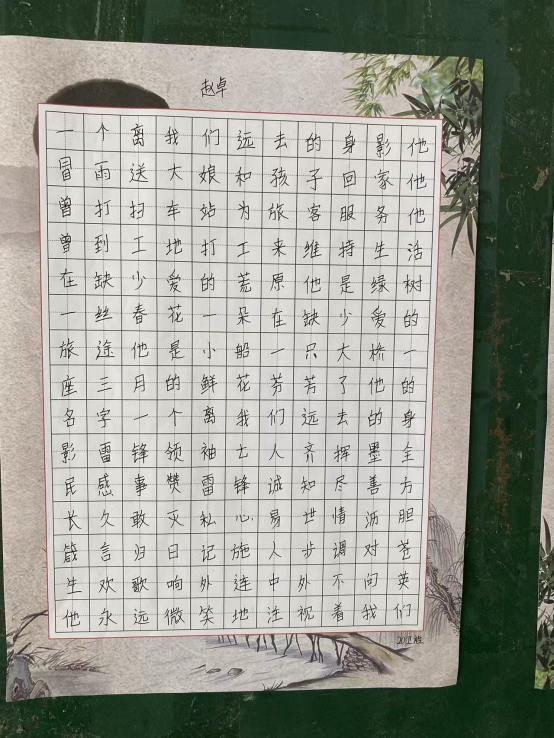 赵卓
一个离我们远去的身影他
冒雨送大娘和孩子回家他
曾打扫车站为旅客服务他
曾到工地打工来维持生活
在缺少爱的荒原他是缘树
一丝春花一朵在缺少爱的
旅途他是小船一只大桥一
座三月的鲜花芬芳了他的
名字一个离我们远去的身
影雷锋领袖七人齐挥墨全
民感事赞雷锋诚知尽善方
长久敢灭私心易世情沥胆
箴言归日记施人步调对苍
生欢歌响外连中外不问英
他永远微笑地注视着我们